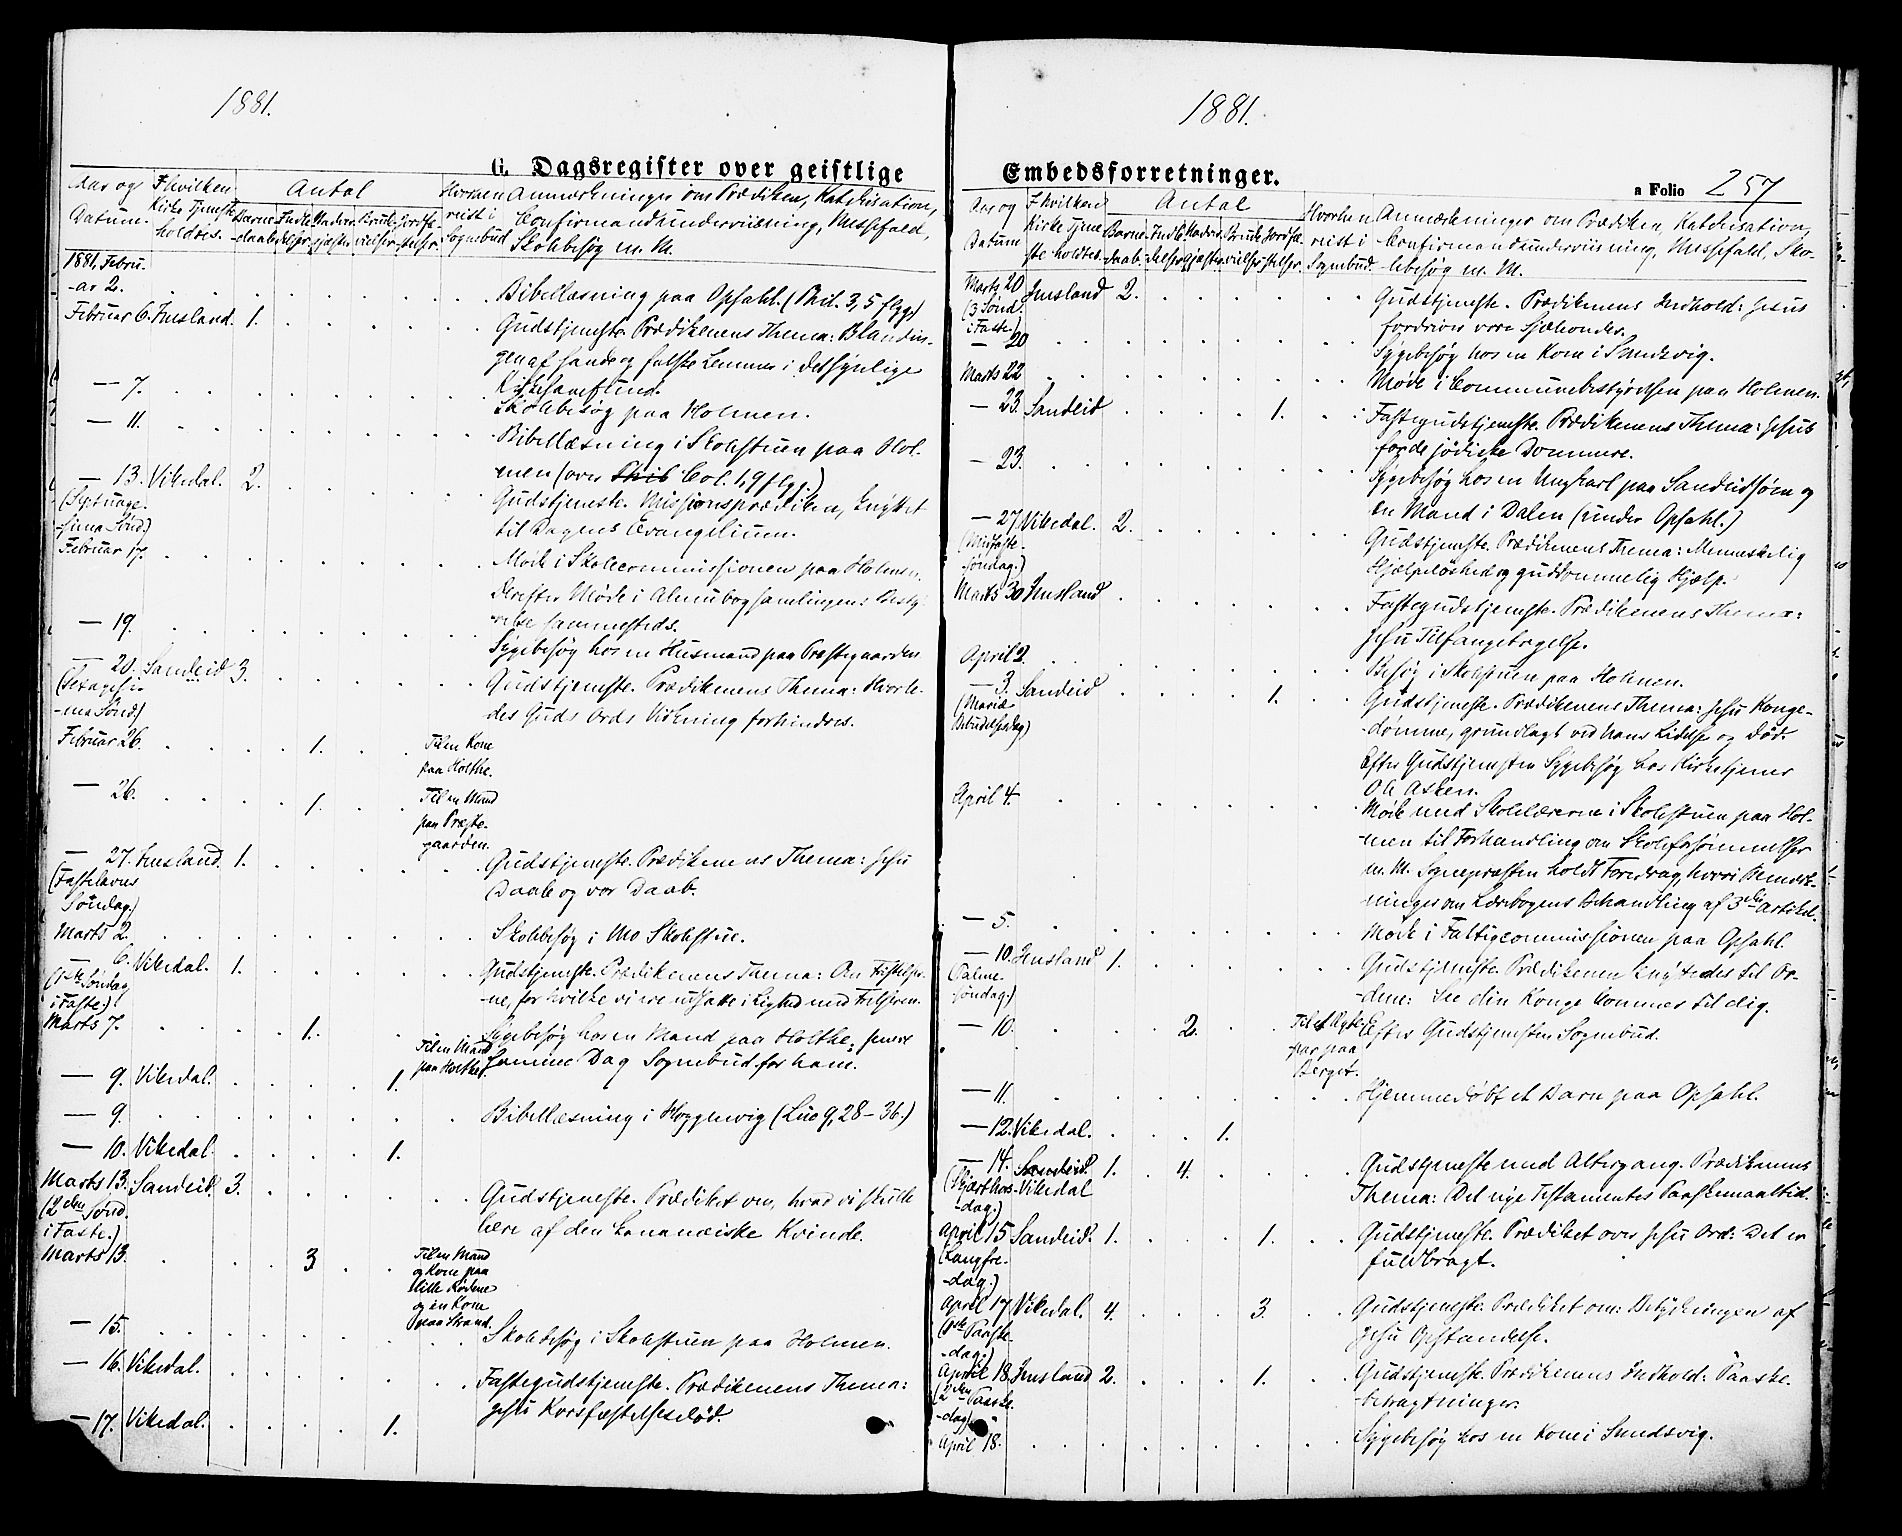 1881.
G. Dagsregister over geistlige
Aar og Datum.
I hvilken Kirke Tjeneste holdtes.
Antal
Barne-daab
Indle-delser
Nadver-gjester
Brude-vielser
Jordfæ-stelser.
Hvorhen reist i Sognebud
Anmerkninger om Prædiken, Katekisation,
Confirmandundervisning, Messefald,
Skolebesøg m. M.
1881, Febru-
-ar 2. Bibellæsning paa Opsahl. (Phil. 3, 5 flgg.)
Februar 6. Imsland. 1. Gudstjeneste. Prædikenens Thema: Blandin-
gen af sande og falske Lemmer i det synlige
Kirkesamfund.
— 7. Skolebesøg paa Holmen.
— 11. Bibellæsning i Skolestuen paa Hol-
men (over Col. 1, 9 flgg.)
— 13. Vikedal. 2. Gudstjeneste. Missionsprædiken, knyttet
(Septuage-
-sima Sønd.) til Dagens Evangelium.
Februar 17. Møde i Skolecommissionen paa Holmen.
Derefter Møde i Almuebogsamlingens Besty-
relse sammesteds.
— 19. Sygebesøg hos en Husmand paa Præstegaarden
— 20. Sandeid 3. Gudstjeneste. Prædikenens Thema: Hvorle-
(Sexagesi-
-ma Sønd.) des Guds Ords Virkning forhindres.
Februar 26. 1. Til en Kone
paa Holthe.
— 26. 1. Til en Mand
paa Præste-
gaarden.
— 27. Imsland. 1. Gudstjeneste. Prædikenens Thema: Jesu
(Fastelavns
Søndag.) Daab og vor Daab.
Marts 2. Skolebesøg i Mo Skolestue.
6. Vikedal. 1. Gudstjeneste. Prædikenens Thema: Om Fristelser-
(1ste Søndag
i Faste.) -ne, for hvilke vi ere udsatte i Lighed med Frelseren.
Marts 7. 1. Til en Mand
paa Holthe. Sygebesøg hos en Mand paa Holthe; senere
samme Dag Sognebud for ham.
— 9. Vikedal. 1.
— 9. Bibellæsning i Høggenvig (Luc 9, 28–36.)
— 10. Vikedal. 1.
Marts 13. Sandeid. 3. Gudstjeneste. Prædiket om, hvad vi skulle
(2den Sønd.
i Faste.) lære af den kananæiske Kvinde.
Marts 13. 3 Til en Mand
og Kone paa
og en Kone
paa Strand.
— 15. Skolebesøg i Skolestuen paa Holmen.
— 16. Vikedal. Fastegudstjeneste. Prædikenens Thema:
Jesu Korsfæstelsesdød.
— 17. Vikedal. 1.
1881.
Embedsforretninger.
a Folio 257
Aar og Datum
I hvilken Kirke Tjene-ste holdtes.
Antal
Barne-daab.
Indle-delser
Nadver-gjester
Brude-vielser
Jordfæ-stelser.
Hvorhen reist i Sognebud.
Anmærkninger om Prædiken, Katekisation,
Confirmandundervisning, Messefald, Sko-
-lebesøg m. M.
Marts 20 Imsland 2. Gudstjeneste. Prædikenens Indhold: Jesus
(3 Sønd.
i Faste) fordriver vore Sjælenøder.
— 20 Sygebesøg hos en Kone i Sandvig.
Marts 22 Møde i Communebestyrelsen paa Holmen.
— 23. Sandeid 1. Fastegudstjeneste. Prædikenens Thema: Jesus
for de jødiske Dommere.
— 23. Sygebesøg hos en Ungkarl paa Sandeidsøen og
en Mand i Dalen (under Opsahl.)
— 27. Vikedal. 2. Gudstjeneste. Prædikenens Thema: Menneskelig
(Midfaste-
søndag.) Hjælpeløshed og guddommelig Hjælp.
Marts 30 Imsland Fastegudstjeneste. Prædikenens Thema:
Jesu Tilfangetagelse.
April 2. Besøg i Skolestuen paa Holmen.
— 3. Sandeid 1. Gudstjeneste. Prædikenens Thema: Jesu Konge-
(Mariæ
Bebudelsesdag) -dømme, grundlagt ved hans Lidelse og Død.
Efter Gudstjenesten Sygebesøg hos Kirketjener
Ole Asken.
April 4. Møde med Skolelærerne i Skolestuen paa Hol-
-men til Forhandling om Skoleforsømmelser
m. M. Sognepræsten holdt Foredrag, hvori Bemærk-
ninger om Lærebogens Behandling af 3die Artikel.
— 5. Møde i Fattigcommissionen paa Opsahl.
— 10. Imsland 1. Gudstjeneste. Prædikenen knyttedes til Or-
(Palme-
søndag.) -dene: See din Konge kommer til dig.
— 10. 2. Til et Ægte-
par paa
Berget. Efter Gudstjenesten Sognebud.
— 11. Hjemmedøbt et Barn paa Opsahl.
— 12. Vikedal. 1.
— 14. Vikedal 1. 4. Gudstjeneste med Altergang. Prædikenens
(Skjærthors-
-dag.) Thema: Det nye Testamentes Paaskemaaltid.
April 15 Sandeid. 1. 1. Gudstjeneste. Prædiket over Jesu Ord: Det er
(Langfre-
-dag.) fuldbragt.
April 17 Vikedal. 4. 3. Gudstjeneste. Prædiket om: Betydningen af
(1ste Paaske-
-dag.) Jesu Opstandelse.
April 18. Imsland 2. 1. Gudstjeneste. Prædikenens Indhold: Paaske-
(2den Paaske-
-dag) -betragtninger.
April 18. Sygebesøg hos en Kone i Sandsvig.